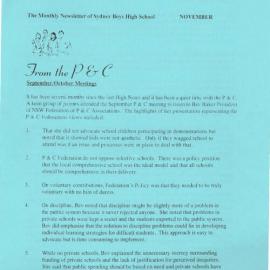 The Monthly Newsletter of Sydney Boys High School NOVEMBER
From the P & C
September/October Meetings
It has been several months since the last High Notes and it has been a quiet time with the P & C.
A keen group of parents attended the September P & C meeting to listen to Bev Baker President
of NSW Federation of P & C Associations. The highlights of her presentation representing the
P & C Federation views included:
1. That she did not advocate school children participating in demonstrations but
noted that it showed kids were not apathetic. Only if they wagged school to
attend was it an issue and processes were in place to deal with that.
2. P & C Federation do not oppose selective schools. There was a policy position
that the local comprehensive school was the ideal model and that all schools
should be comprehensive in their delivery.
3. On voluntary contributions, Federation's Policy was that they needed to be truly
voluntary with no hint of duress.
4. On discipline, Bev noted that discipline might be slightly more of a problem in
the public system because it never rejected anyone. She noted that problems in
private schools were kept a secret and the students exported to the public system.
Bev did emphasise that the solution to discipline problems could lie in developing
individual learning strategies for difficult students. This approach is easy to
advocate but is time consuming to implement.
5. While on private schools, Bev explained the unnecessary secrecy surrounding
funding of private schools and the lack of justification for perceived inequities.
She said that public spending should be based on need and private schools have